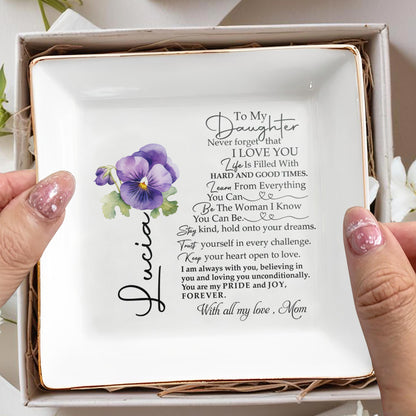 Lucia
To My
Daughter
Never forget that
I LOVE YOU
Life Is Filled With
HARD AND GOOD TIMES.
Learn From Everything
You Can
Be The Woman I Know
You Can Be.
Stay kind, hold onto your dreams.
Trust yourself in every challenge.
Keep your heart open to love.
I am always with you, believing in
you and loving you unconditionally.
You are my PRIDE and JOY,
FOREVER.
With all my love , Mom